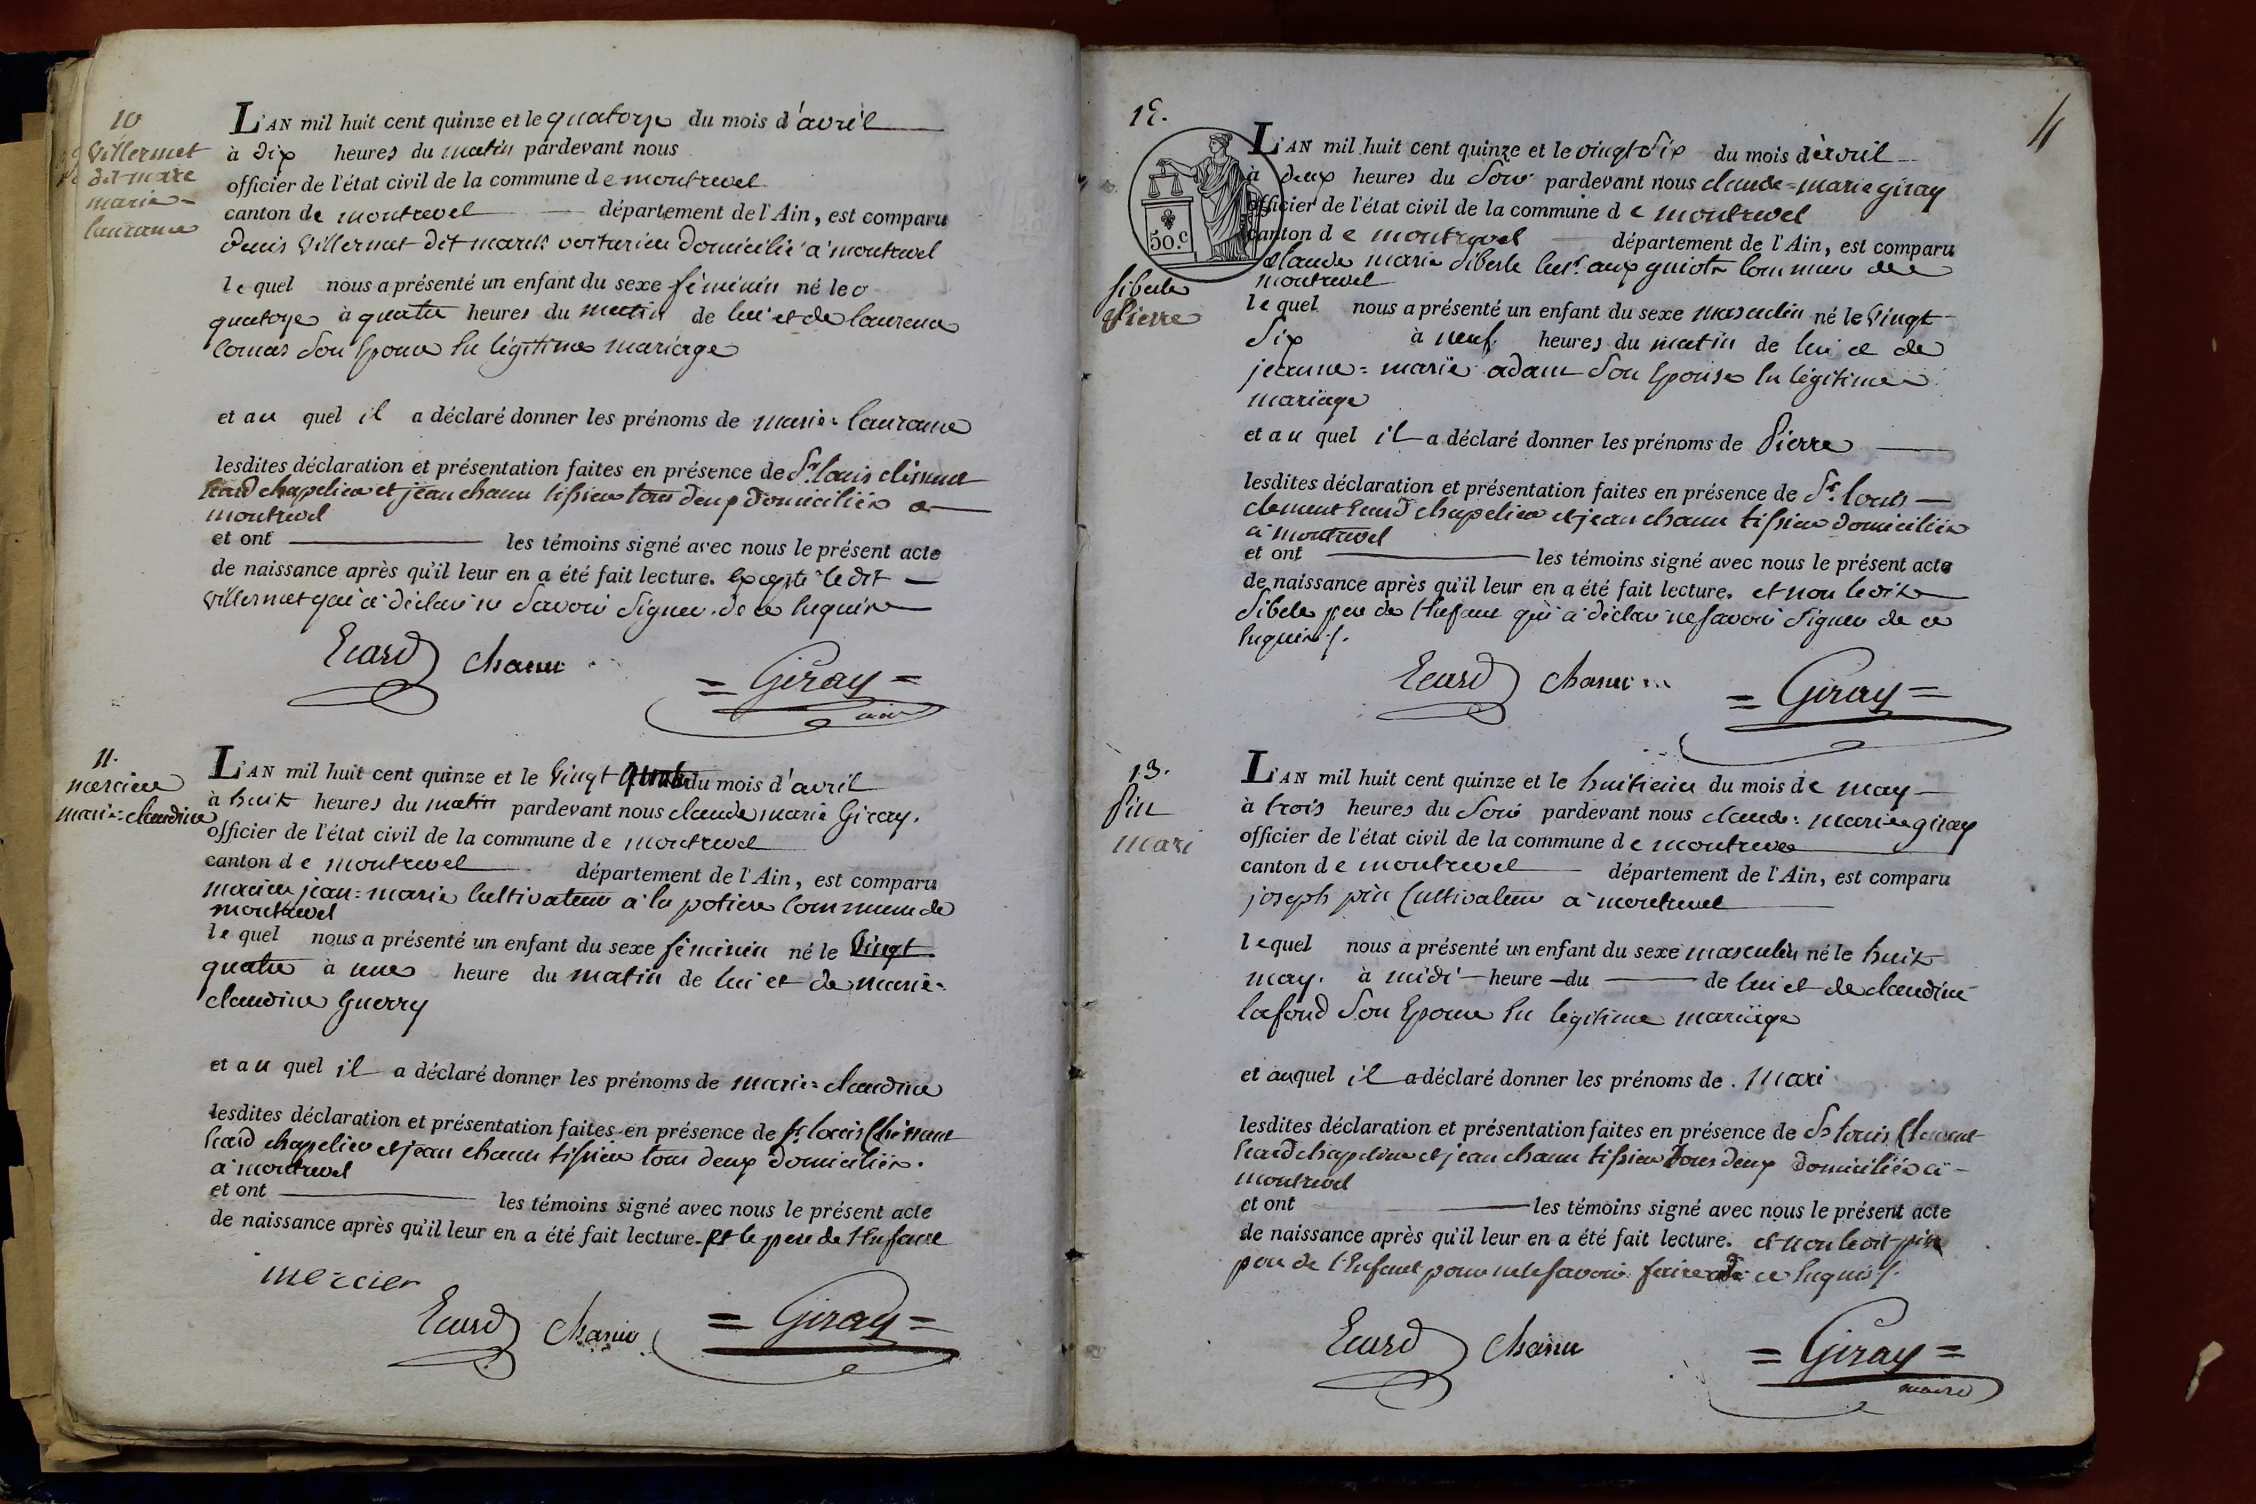 10
Villermet
dit marc
marie=
laurance
L'AN mil huit cent quinze et le quatorze du mois d'avril
à dix heures du matin pardevant nous
officier de l'état civil de la commune de montrevel
canton de montrevel département de l'Ain, est comparu
denis Villermet dit marck voiturier domicilié a montrevel
lequel nous a présenté un enfant du sexe féminin né le
quatorze à quatre heures du matin de lui et de laurence
Comas Son Epouse En légitime mariage
et au quel il a déclaré donner les prénoms de marie= laurance
lesdites déclaration et présentation faites en présence de Sr. louis clément
Ecard chapelier et jean chanu tissier tous deux domiciliés a
montrevel
et ont les témoins signé avec nous le présent acte
de naissance après qu'il leur en a été fait lecture. Excepté le dit
Villermet qui a déclaré ne Savoir Signer. de ce Enquis
Ecard chanu = Giray =
11.
mercier
marie=claudine
L'AN mil huit cent quinze et le Vingt du mois d'avril
à huit heures du matin pardevant nous claude marie Giray.
officier de l'état civil de la commune de montrevel
canton de montrevel département de l'Ain, est comparu
mercier jean=marie Cultivateur a la potiere Commune de
montrevel
lequel nous a présenté un enfant du sexe féminin né le Vingt
quatre à une heure du matin de lui et de marie=
claudine Guerry
et au quel il a déclaré donner les prénoms de marie=claudine
lesdites déclaration et présentation faites en présence de Sr. louis Clément
Ecard chapelier et jean chanu tissier tous deux domiciliés.
a montrevel
et ont les témoins signé avec nous le présent acte
de naissance après qu'il leur en a été fait lecture. et le pere de l'Enfant
mercier
Ecard chanu = Giray =
4
12.
50.c
Siberle
Pierre
L'AN mil huit cent quinze et le vingt Six du mois d'avril
à deux heures du Soir pardevant nous claude=marie giray
officier de l'état civil de la commune de montrevel
canton de montrevel département de l'Ain, est comparu
Claude marie Siberle Cult.r aux guiots Commune de
montrevel
lequel nous a présenté un enfant du sexe masculin né le Vingt
Six à neuf heures du matin de lui et de
jeanne=marie adam Son Epouse En légitime
mariage
et au quel il a déclaré donner les prénoms de Pierre
lesdites déclaration et présentation faites en présence de Sr. louis
clement Ecard chapelier et jean chanu tissier domiciliés
a montrevel
et ont les témoins signé avec nous le présent acte
de naissance après qu'il leur en a été fait lecture. et non ledit
Siberle pere de l'Enfant qui a déclaré ne savoir Signer de ce
Enquis
Ecard chanu = Giray =
13.
Pin
Mari
L'AN mil huit cent quinze et le huitieme du mois de may
à trois heures du Soir pardevant nous claude=marie giray
officier de l'état civil de la commune de montrevel
canton de montrevel département de l'Ain, est comparu
joseph pin Cultivateur a montrevel
lequel nous a présenté un enfant du sexe masculin né le huit
may. à midi heure du de lui et de claudine
lafond Son Epouse En légitime mariage
et auquel il a déclaré donner les prénoms de Mari
lesdites déclaration et présentation faites en présence de Sr louis Clement
Ecard chapelier et jean chanu tissier Tous deux domiciliés a
montrevel
et ont les témoins signé avec nous le présent acte
de naissance après qu'il leur en a été fait lecture. et non ledit pin
pere de l'Enfant pour ne le savoir faire de ce Enquis
Ecard chanu = Giray =
maire